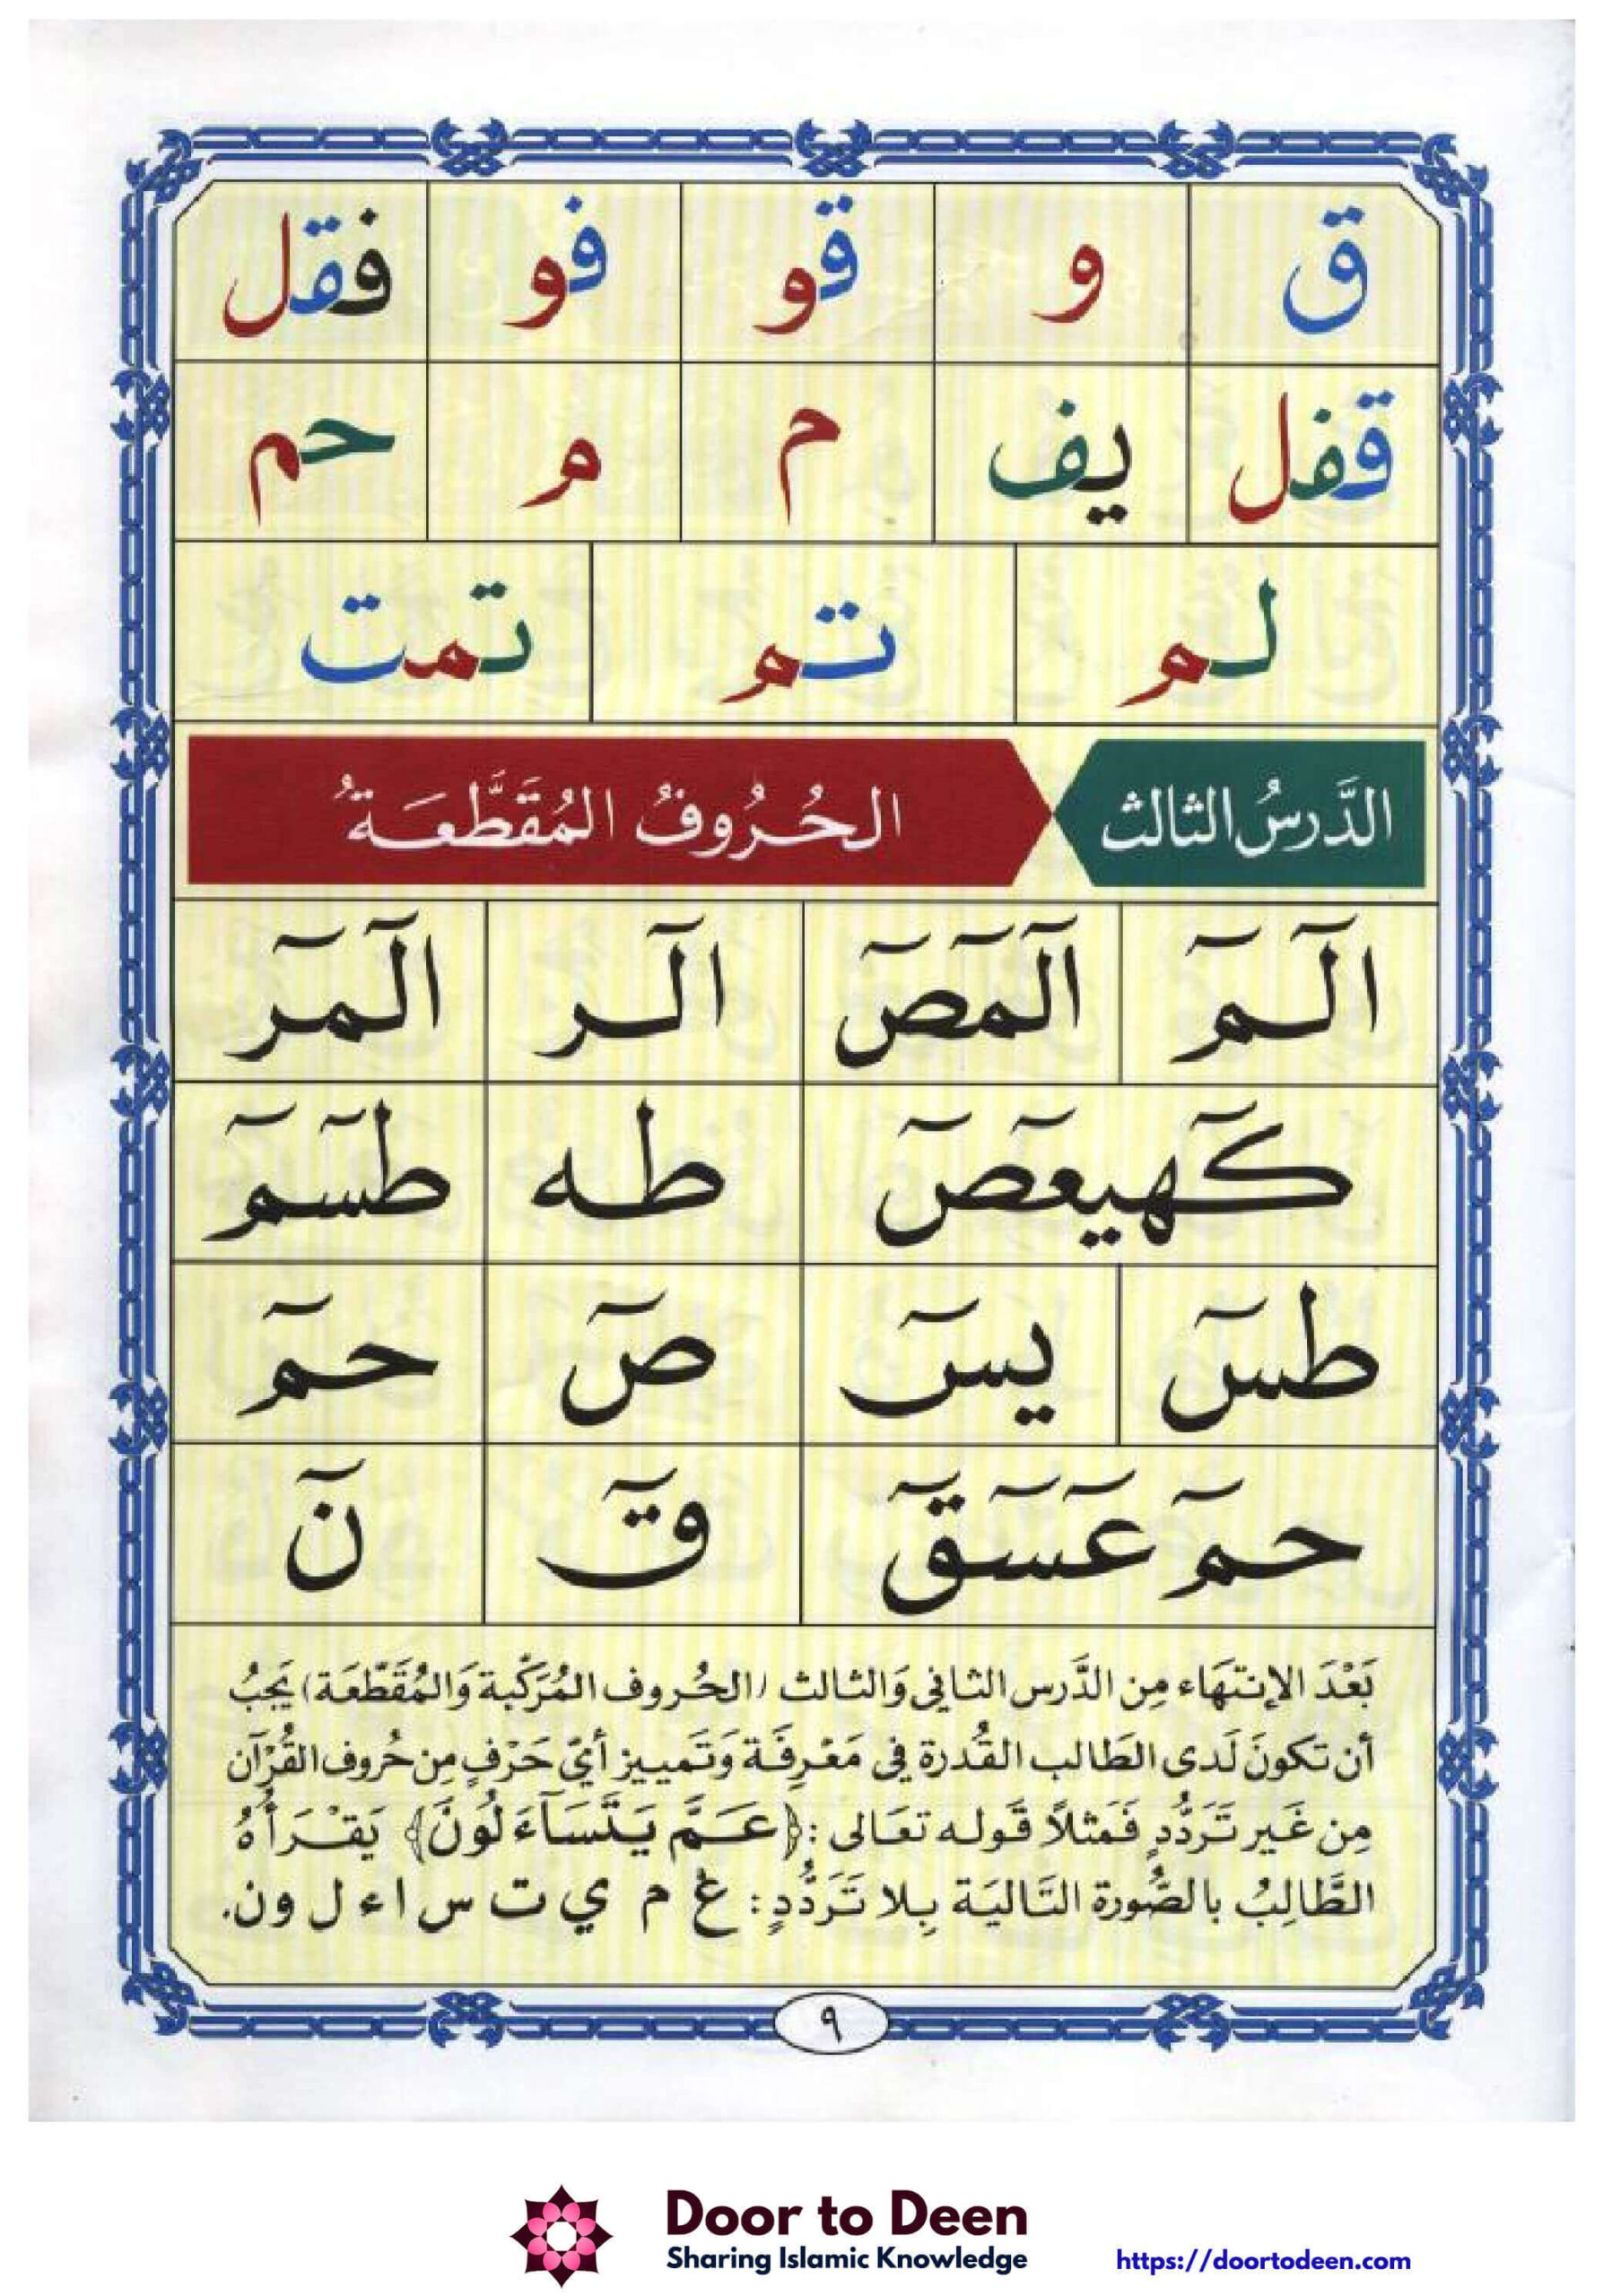 ق و قو فو فقل
قفل يف م م حم
لم تم تمت
الدَّرسُ الثالث الحُرُوفُ المُقَطَّعَةُ
الٓمٓ الٓمٓصٓ الٓر الٓمٓر
كٓهيعٓصٓ طه طسٓمٓ
طسٓ يسٓ صٓ حمٓ
حمٓ عٓسٓقٓ قٓ نٓ
بَعْدَ الإنتهَاء مِن الدَّرس الثاني وَالثالث (الحُروف المُرَكَّبة وَالمُقَطَّعَة) يَجِبُ
أن تكونَ لَدى الطَالب القُدرة في مَعْرِفَة وَتَمييز أيّ حَرْفٍ مِن حُروف القُرْآن
مِن غَير تَرَدُّدٍ فَمَثلاً قَوله تعَالى : ﴿عَمَّ يَتَسَآءَلُونَ﴾ يَقْرَأُهُ
الطَّالِبُ بالصُّورة التَّاليَة بِلا تَرَدُّدٍ : ع م ي ت س ا ء ل و ن.
٩
Door to Deen
Sharing Islamic Knowledge https://doortodeen.com